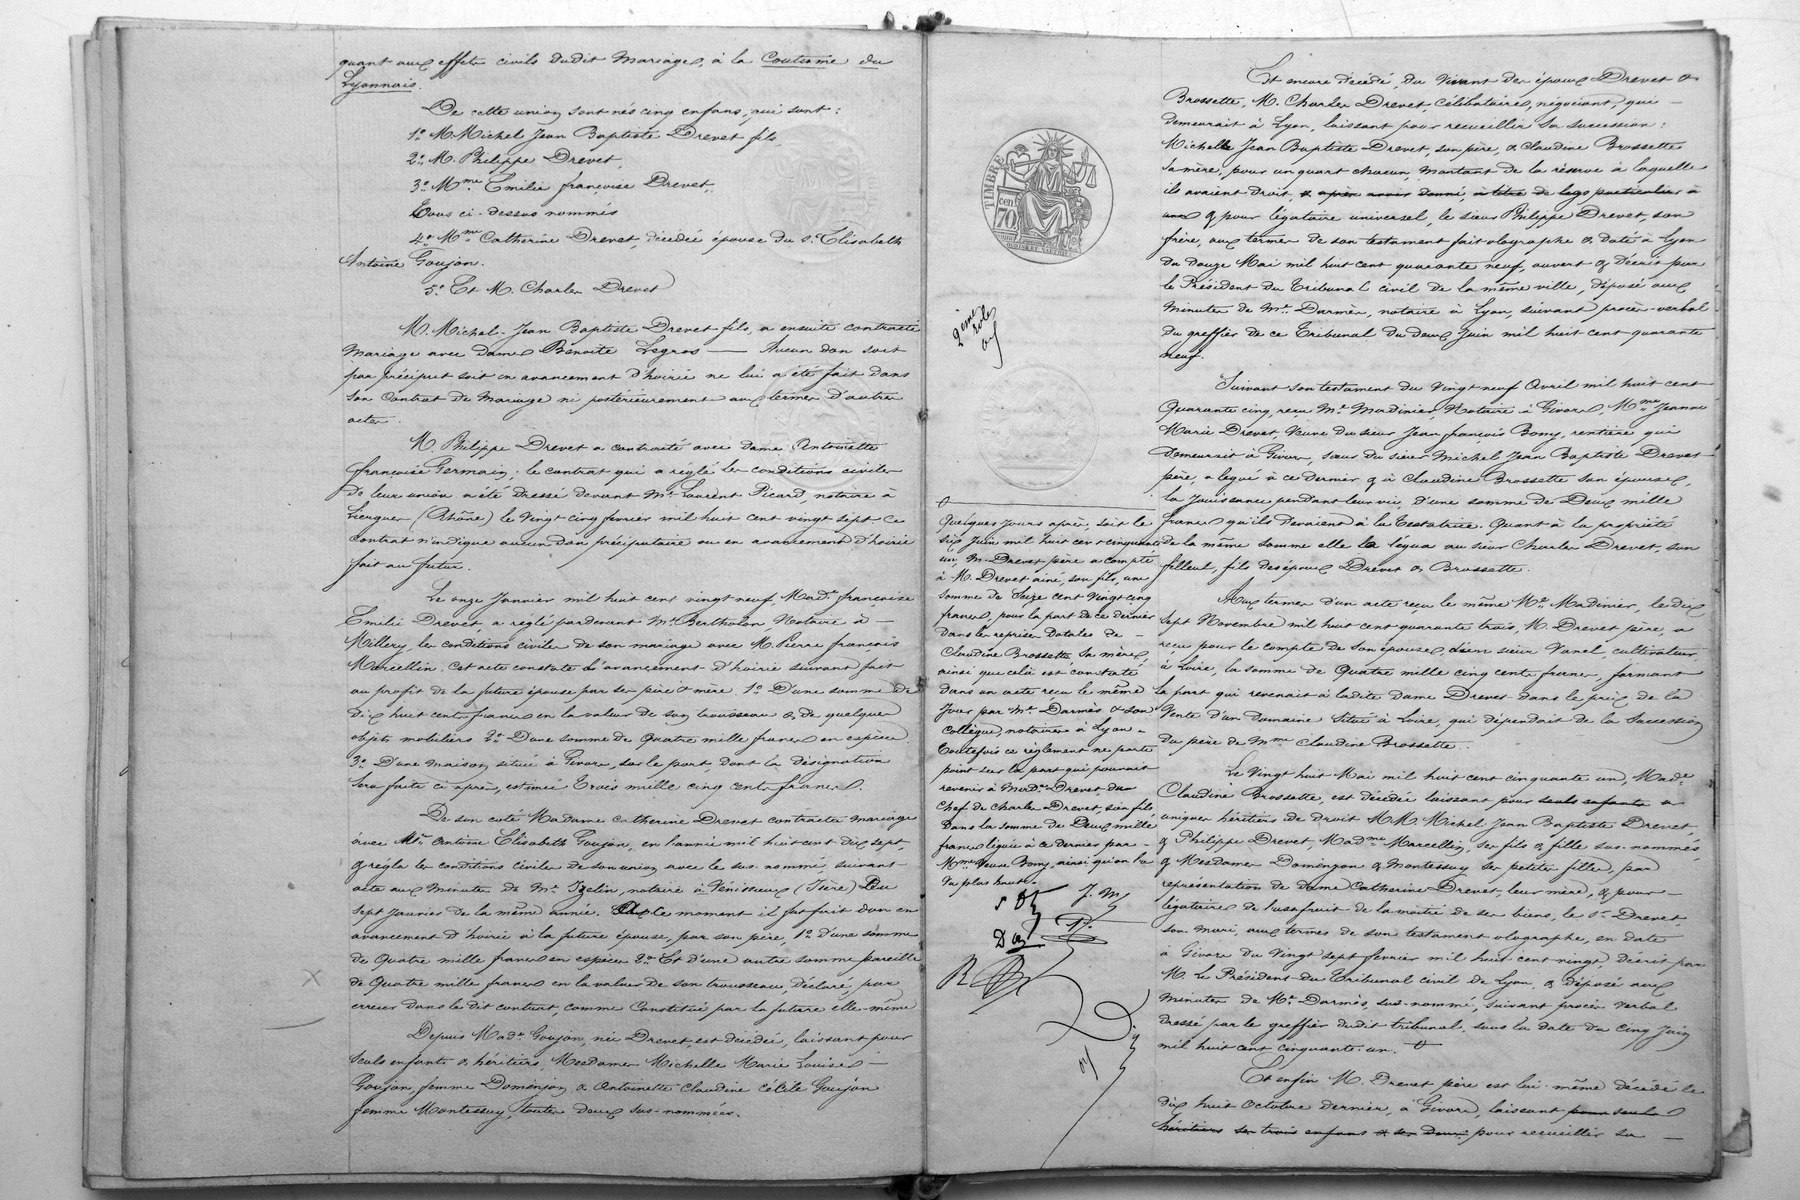 quant aux effets civils dudit Mariage, à la Coutume du
Lyonnais.
De cette union sont nés cinq enfans, qui sont :
1º M. Michel Jean Baptiste Drevet fils,
2º M. Philippe Drevet,
3º Mme Emilie françoise Drevet,
Tous ci-dessus nommés
4º Mme Catherine Drevet, décédée épouse du sr Elisabeth
Antoine Goujon.
5º Et M. Charles Drevet
M. Michel-Jean Baptiste Drevet fils, a ensuite contracté
Mariage avec dame Benoite Legros — Aucun don soit
par préciput soit en avancement d'hoirie ne lui a été fait dans
son Contrat de Mariage ni postérieurement aux termes d'autres
actes.
M. Philippe Drevet a contracté avec dame Antoinette
françoise Germain; le contrat qui a réglé les conditions civiles
de leur union a été dressé devant Me Laurent Picard, notaire à
(Rhône) le vingt cinq fevrier mil huit cent vingt sept ce
contrat n'indique aucun don préciputaire ou en avancement d'hoirie
fait au futur.
Le onze Janvier mil huit cent vingt neuf, Made françoise
Emilie Drevet, a réglé pardevant Me Bertholon Notaire à —
Millery, les conditions civiles de son mariage avec M. Pierre françois
Marcellin. Cet acte constate l'avancement d'hoirie suivant fait
au profit de la future épouse par ses père & mère. 1º D'une somme de
dix huit cents francs en la valeur de son trousseau & de quelques
objets mobiliers 2º D'une somme de Quatre mille francs en espèces.
3º D'une maison située à Givors, sur le port, dont la désignation
sera faite ci après, estimée Trois mille cinq cents francs.
De son coté Madame Catherine Drevet contracta mariage
avec Mr Antoine Elisabeth Goujon, en l'année mil huit cent dix sept
& régla les conditions civiles de son union avec le sus-nommé, suivant
acte aux Minutes de Me Igelin, notaire à Venissieux (Isère) Du
sept Janvier de la même année. A ce moment il fut fait don en
avancement d'hoirie à la future épouse, par son père, 1º d'une somme
de Quatre mille francs en espèces 2º Et d'une autre somme pareille
de Quatre mille francs en la valeur de son trousseau, déclaré, par
erreur dans le dit contrat, comme Constitué par la future elle-même
Depuis Made Goujon, née Drevet, est décédée, laissant pour
seuls enfants & héritiers, Mesdames Michelle Marie Louise —
Goujon femme Domenjon & Antoinette Claudine Cécile Goujon
femme Montessuy, toutes deux sus-nommées.
TIMBRE
70 cen.
2ème rôle
Quelques jours après, soit le
six Juin mil huit cent cinquante
un, M. Drevet père a compté
à M. Drevet ainé, son fils, une
somme de Seize cent vingt cinq
francs, pour la part de ce dernier
dans les reprises dotales de —
Claudine Brossette sa mère,
ainsi que celà est constaté
dans un acte reçu le même
jour par Me Darmès & son
Collègue, notaires à Lyon.
Toutefois ce règlement ne porte
point sur la part qui pouvait
revenir à Made Drevet, du
Chef de Charles Drevet, son fils,
dans la somme de Deux mille
francs léguée à ce dernier par —
Mme Veuve Bomy, ainsi qu'on l'a
vu plus haut.
J. M
Est encore décédé, du vivant des époux Drevet &
Brossette, M. Charles Drevet, célibataire, négociant, qui —
demeurait à Lyon, laissant pour recueillir sa succession :
Michel Jean Baptiste Drevet, son père, & Claudine Brossette
sa mère, pour un quart chacun, montant de la réserve à laquelle
ils avaient droit, & après avoir donné, à titre de legs particulier à
& pour légataire universel, le sieur Philippe Drevet, son
frère, aux termes de son testament fait olographe & daté à Lyon
du douze Mai mil huit cent quarante neuf, ouvert & décrit par
le Président du Tribunal civil de la même ville, déposé aux
Minutes de Me Darmès, notaire à Lyon, suivant procès-verbal
du greffier de ce Tribunal du deux Juin mil huit cent quarante
neuf.
Suivant son testament du Vingt neuf Avril mil huit cent
Quarante cinq, reçu Me Madinier, Notaire à Givors, Mme Jeanne
Marie Drevet, Veuve du sieur Jean françois Bomy, rentière qui
demeurait à Givors, sœur du sieur Michel Jean Baptiste Drevet
père, a legué à ce dernier & à Claudine Brossette son épouse,
la jouissance pendant leur vie, d'une somme de Deux mille
francs qu'ils devaient à la Testatrice. Quant à la propriété
de la même somme elle la légua au sieur Charles Drevet, son
filleul, fils des époux Drevet & Brossette.
Aux termes d'un acte reçu le même Me Madinier, le dix
sept Novembre mil huit cent quarante trois, M. Drevet père, a
reçu pour le compte de son épouse, d'un sieur Vanel, cultivateur
à Loire, la somme de Quatre mille cinq cents francs, formant
la part qui revenait à ladite Dame Drevet dans le prix de la
Vente d'un domaine situé à Loire, qui dépendait de la Succession
du père de Mme Claudine Brossette.
Le Vingt huit Mai mil huit cent cinquante un, Made
Claudine Brossette, est décédée laissant pour seuls enfants &
uniques héritiers de droit MM. Michel Jean Baptiste Drevet,
& Philippe Drevet, Madme Marcellin, ses fils & fille sus-nommés,
& Mesdames Domenjon & Montessuy ses petites filles, par
représentation de dame Catherine Drevet, leur mère, & pour —
légataire de l'usufruit de la moitié de ses biens, le sr Drevet,
son mari, aux termes de son testament olographe, en date
à Givors du Vingt sept fevrier mil huit cent vingt, décrit par
M. le Président du Tribunal civil de Lyon, & déposé aux
Minutes de Me Darmès, sus-nommé, suivant procès verbal
dressé par le greffier dudit tribunal, sous la date du cinq Juin
mil huit cent cinquante un.
Et enfin M. Drevet père est lui-même décédé le
dix huit Octobre dernier, à Givors, laissant pour seuls
héritiers ses trois enfans & ses deux pour recueillir sa —